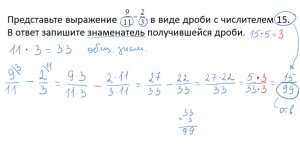 Представьте выражение 9/11 - 2/3 в виде дроби с числителем 15.
В ответ запишите знаменатель получившейся дроби. 15:5=3
11 · 3 = 33 общ. знам.
9\3/11 - 2\11/3 = 9·3/11·3 - 2·11/3·11 = 27/33 - 22/33 = 27-22/33 = 5·3/33·3 = 15/99
отв.
33
× 3
99